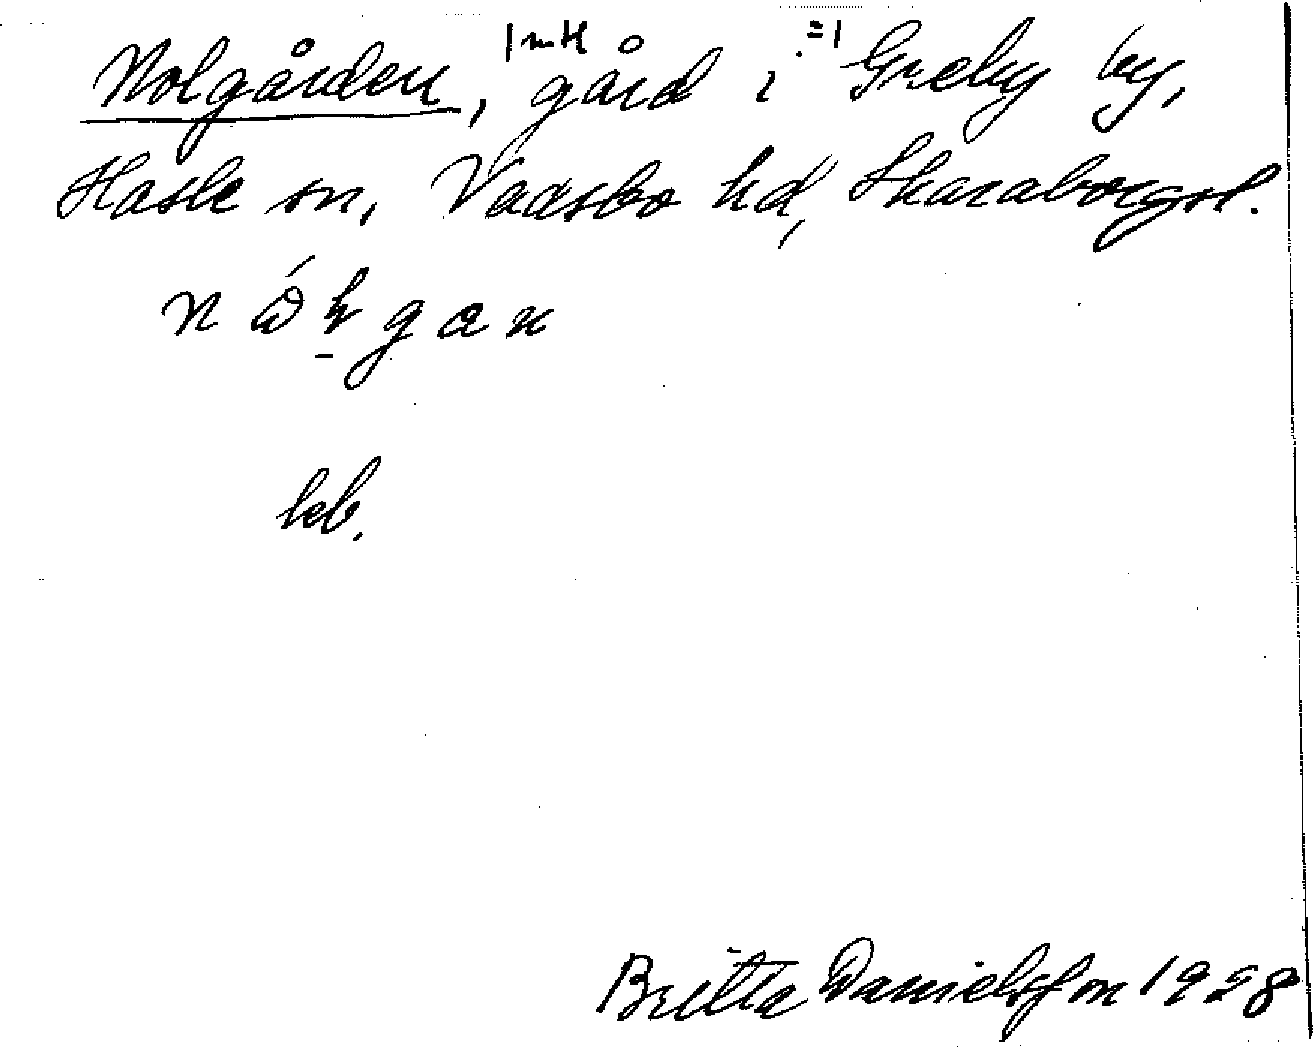 Nolgården, 1 mtl gård i =1 Greby by,
Hasle sn, Vadsbo hd, Skaraborgsl.
kb.
Britta Danielsson 1928